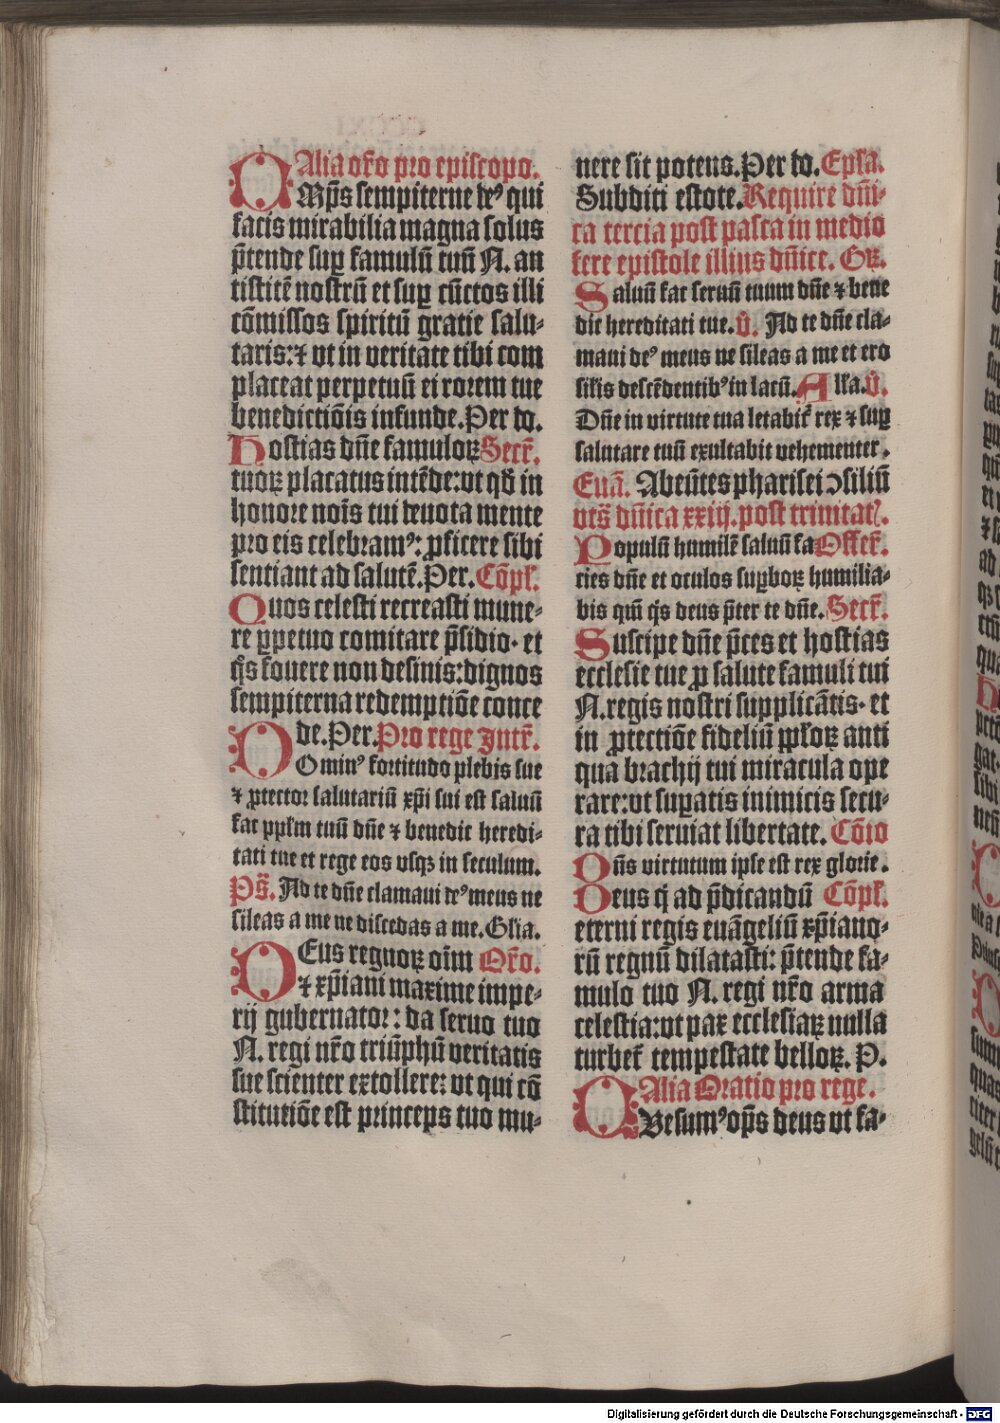 Alia or̄o pro episcopo.
OMp̄s sempiterne deꝰ qui
facis mirabilia magna solus
p̄tende suꝑ famulū tuū N. an
tistitē nostrū et suꝑ cūctos illi
cōmissos spiritū gratie salu-
taris: ⁊ vt in veritate tibi com
placeat perpetuū ei rorem tue
benedictiōis infunde. Per do.
Hostias dn̄e famuloꝝ Secr̄.
tuoꝝ placatus intēde: vt qd̄ in
honore noīs tui deuota mente
pro eis celebramꝰ: ꝓficere sibi
sentiant ad salutē. Per. Cōpl̄.
Quos celesti recreasti mune-
re ꝑpetuo comitare p̄sidio. et
q̄s fouere non desinis: dignos
sempiterna redemptiōe conce
de. Per. Pro rege Intr̄.
Dominꝰ fortitudo plebis sue
⁊ ꝓtector salutariū xp̄i sui est saluū
fac ppl̄m tuū dn̄e ⁊ benedic heredi-
tati tue et rege eos vsqꝫ in seculum.
Ps̄. Ad te dn̄e clamaui deꝰ meus ne
sileas a me ne discedas a me. Gl̄ia.
DEus regnoꝝ oīm Or̄o.
⁊ xp̄iani maxime impe-
rij gubernator: da seruo tuo
N. regi nr̄o triūphū veritatis
sue scienter extollere: vt qui cō
stitutiōe est princeps tuo mu-
nere sit potens. Per do. Epl̄a.
Subditi estote. Require dn̄i-
ca tercia post pasca in medio
fere epistole illius dn̄ice. Gꝝ.
Saluū fac seruū tuum dn̄e ⁊ bene
dic hereditati tue. v̄. Ad te dn̄e cla-
maui deꝰ meus ne sileas a me et ero
sil̄is descēdentibꝰ in lacū. All̄a. v̄.
Dn̄e in virtute tua letabit̄ rex ⁊ suꝑ
salutare tuū exultabit vehementer.
Euā. Abeūtes pharisei ↄsiliū
vts̄ dn̄ica xxiij. post trinitat̄.
Populū humilē saluū fa Offer̄.
cies dn̄e et oculos suꝑboꝝ humilia-
bis qm̄ q̄s deus p̄ter te dn̄e. Secr̄.
Suscipe dn̄e p̄ces et hostias
ecclesie tue ꝓ salute famuli tui
N. regis nostri supplicātis. et
in ꝓtectiōe fideliū ppl̄oꝝ anti
qua brachij tui miracula ope
rare: vt suꝑatis inimicis secu-
ra tibi seruiat libertate. Cōio
Dn̄s virtutum ipse est rex glorie.
Deus q̄ ad p̄dicandū Cōpl̄.
eterni regis euāgeliū xp̄iano-
rū regnū dilatasti: p̄tende fa-
mulo tuo N. regi nr̄o arma
celestia: vt pax ecclesiaꝝ nulla
turbet̄ tempestate belloꝝ. P.
Alia Oratio pro rege.
QVesumꝰ op̄s deus vt fa-
Digitalisierung gefördert durch die Deutsche Forschungsgemeinschaft - DFG